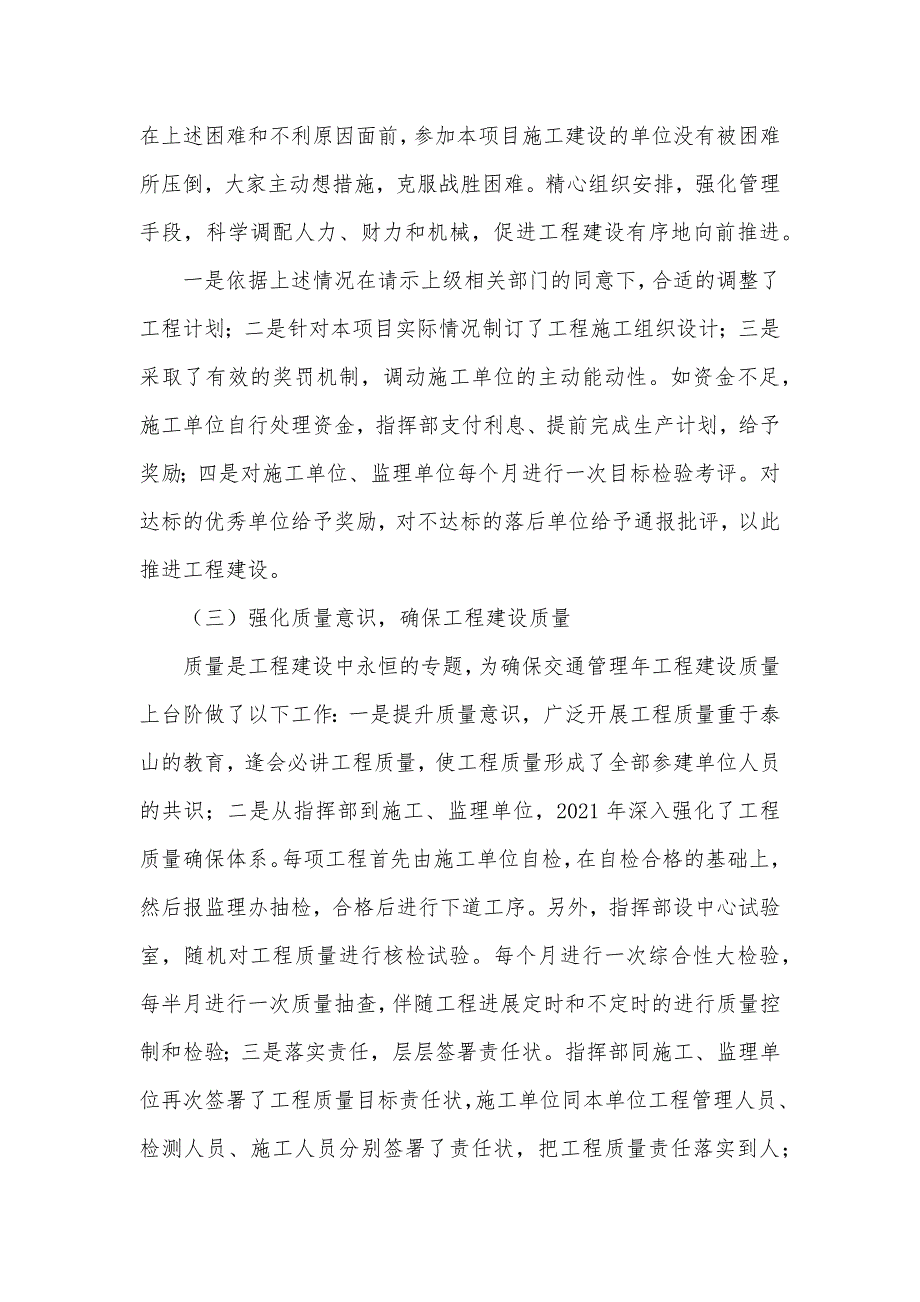 在上述困难和不利原因面前，参加本项目施工建设的单位没有被困难
所压倒，大家主动想措施，克服战胜困难。精心组织安排，强化管理
手段，科学调配人力、财力和机械，促进工程建设有序地向前推进。
一是依据上述情况在请示上级相关部门的同意下，合适的调整了
工程计划；二是针对本项目实际情况制订了工程施工组织设计；三是
采取了有效的奖罚机制，调动施工单位的主动能动性。如资金不足，
施工单位自行处理资金，指挥部支付利息、提前完成生产计划，给予
奖励；四是对施工单位、监理单位每个月进行一次目标检验考评。对
达标的优秀单位给予奖励，对不达标的落后单位给予通报批评，以此
推进工程建设。
（三）强化质量意识，确保工程建设质量
质量是工程建设中永恒的专题，为确保交通管理年工程建设质量
上台阶做了以下工作：一是提升质量意识，广泛开展工程质量重于泰
山的教育，逢会必讲工程质量，使工程质量形成了全部参建单位人员
的共识；二是从指挥部到施工、监理单位，2021 年深入强化了工程
质量确保体系。每项工程首先由施工单位自检，在自检合格的基础上，
然后报监理办抽检，合格后进行下道工序。另外，指挥部设中心试验
室，随机对工程质量进行核检试验。每个月进行一次综合性大检验，
每半月进行一次质量抽查，伴随工程进展定时和不定时的进行质量控
制和检验；三是落实责任，层层签署责任状。指挥部同施工、监理单
位再次签署了工程质量目标责任状，施工单位同本单位工程管理人员、
检测人员、施工人员分别签署了责任状，把工程质量责任落实到人；